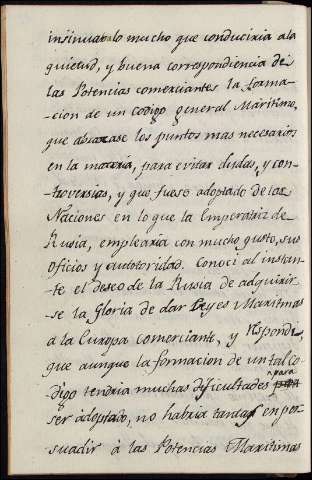 insinuabalo mucho que conduciria ala
quietud, y buena correspondiencia de
las Potencias comerciantes la forma-
-cion de un codigo general Maritimo,
que abrazase los puntos mas necesarios
en la materia, para evitar dudas, y con-
troversias, y que fuese adoptado de las
Naciones en lo que la Emperatriz de
Rusia, emplearia con mucho gusto, sus
oficios y autoridad. Conocí al instan-
te el deseo de la Rusia de adquirir-
-se la Gloria de dar Leyes Maritimas
a la Europa comerciante, y respondi,
que aunque la formacion de un tal co-
digo tendria muchas dificultades para
ser adoptado, no habria tantas en per-
suadir à las Potencias Maritimas